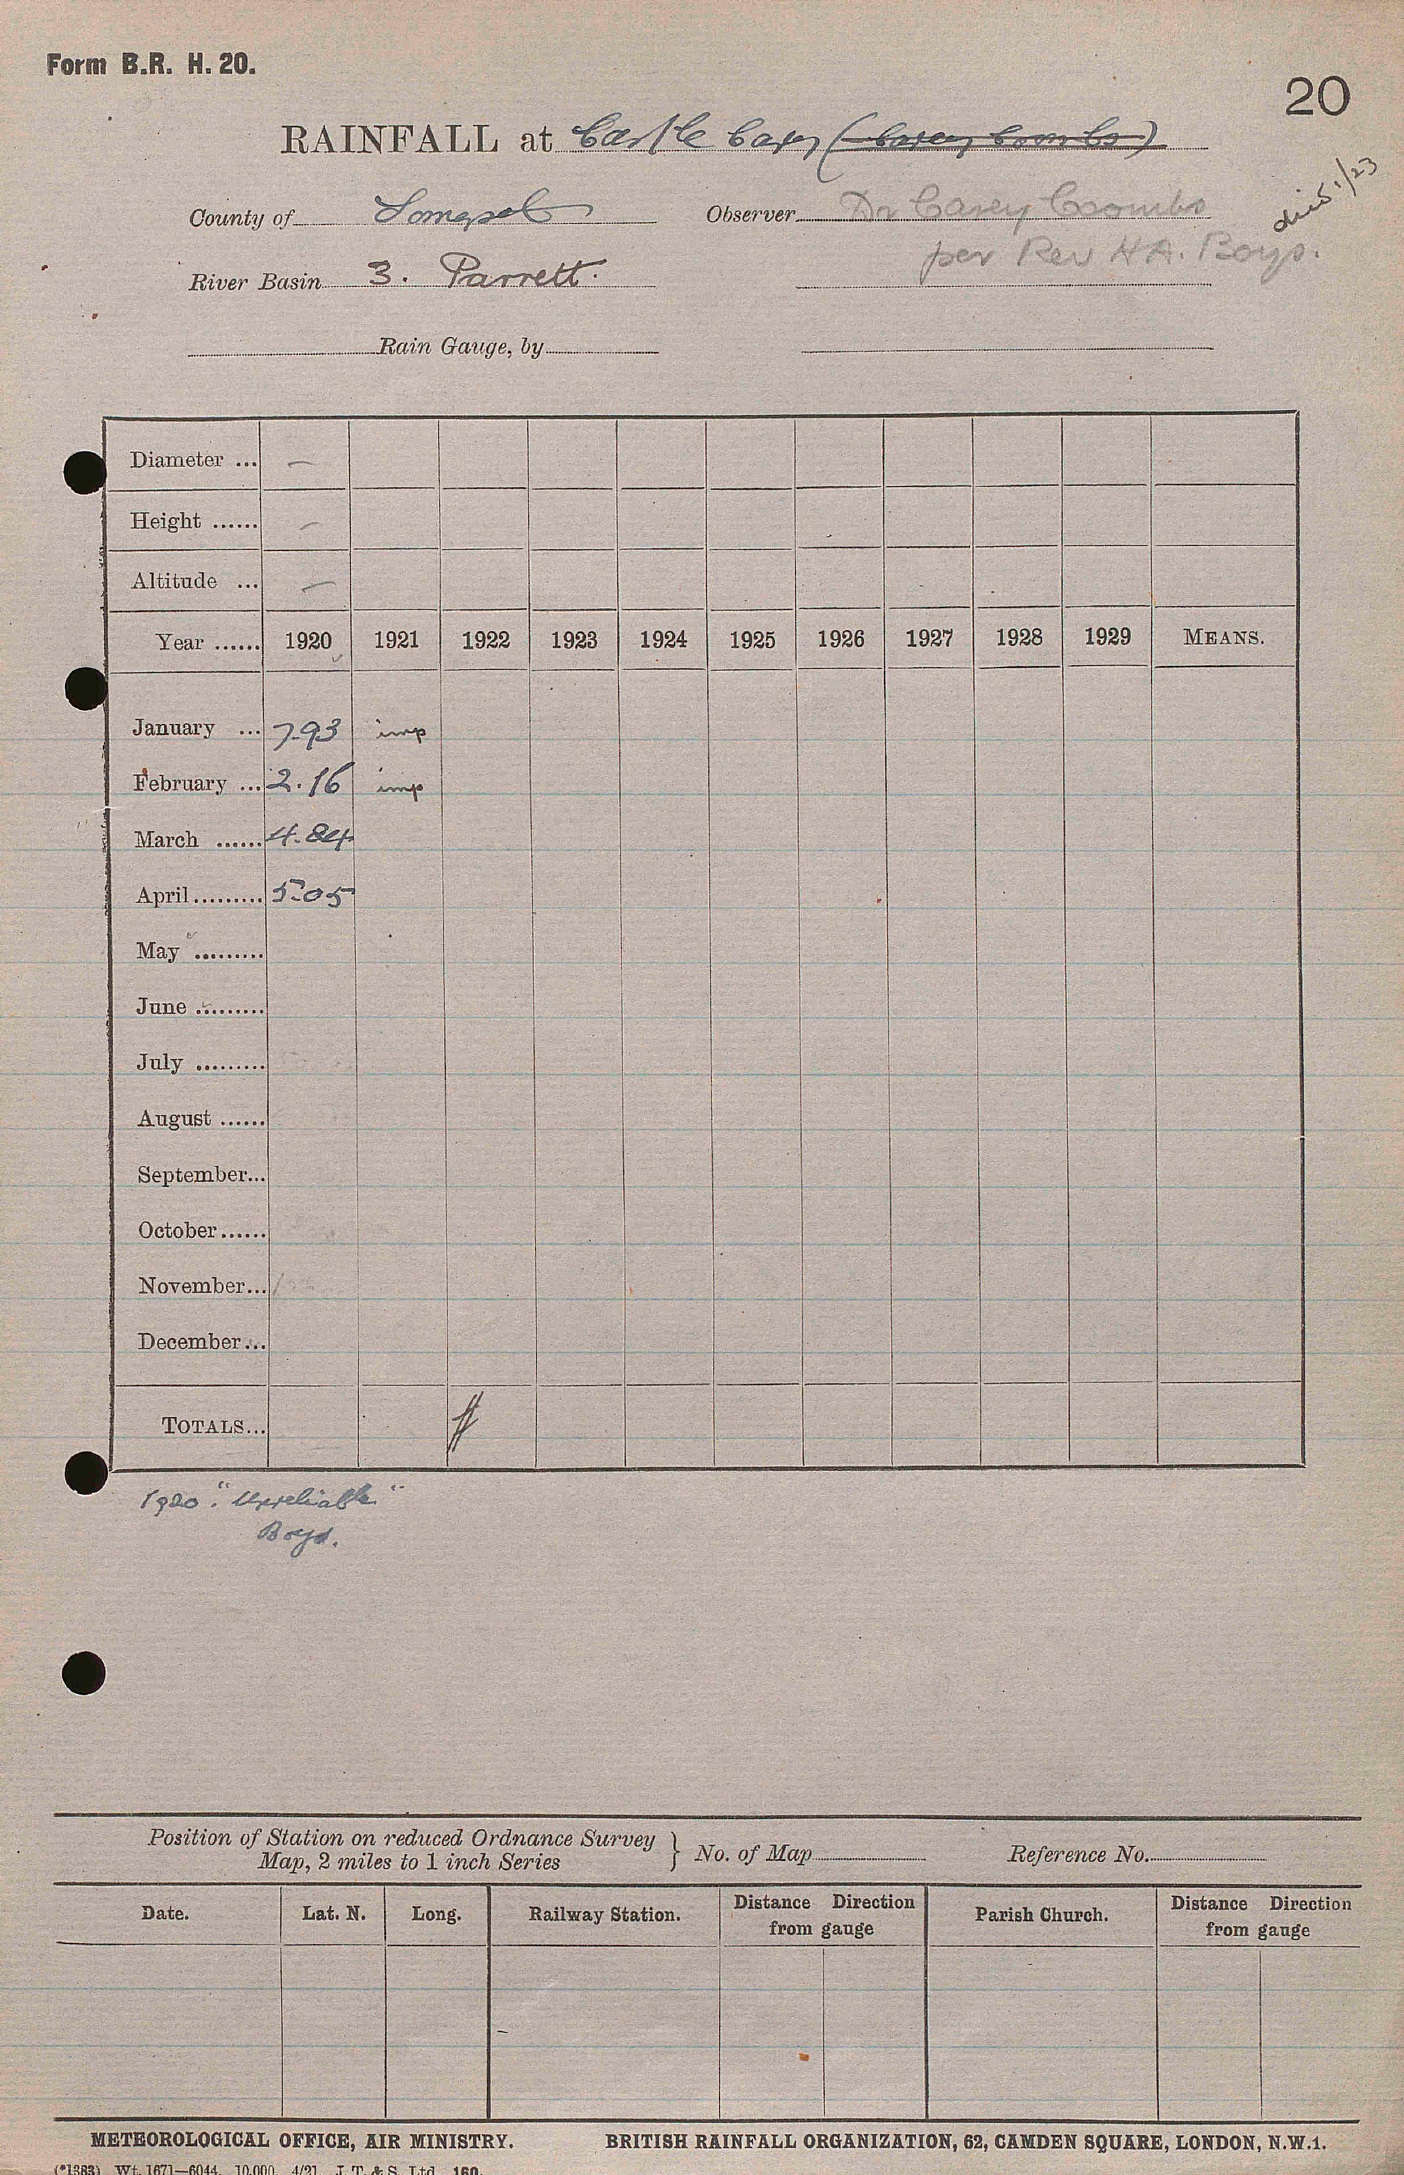 Form B.R. H. 20.
20
RAINFALL at Castle Cary (Carey Coombs)
County of Somerset
Observer Dr Carey Coombs
1/23
River Basin 3. Parrett.
per Rev H A. Boys.
Rain Gauge, by
Diameter ... —
Height ...... —
Altitude ... —
Year ...... 1920 1921 1922 1923 1924 1925 1926 1927 1928 1929 MEANS.
January ... 7.93 imp
February ... 2.16 imp
March ...... 4.84
April ......... 5.05
May .........
June .........
July .........
August ......
September...
October......
November...
December...
TOTALS...
1920 "Unreliable"
Boys.
Position of Station on reduced Ordnance Survey
Map, 2 miles to 1 inch Series } No. of Map Reference No.
Date. Lat. N. Long. Railway Station. Distance Direction from gauge Parish Church. Distance Direction from gauge
METEOROLOGICAL OFFICE, AIR MINISTRY. BRITISH RAINFALL ORGANIZATION, 62, CAMDEN SQUARE, LONDON, N.W.1.
(*1383) Wt. 1671—6044. 10,000. 4/21. J. T. & S. Ltd. 160.